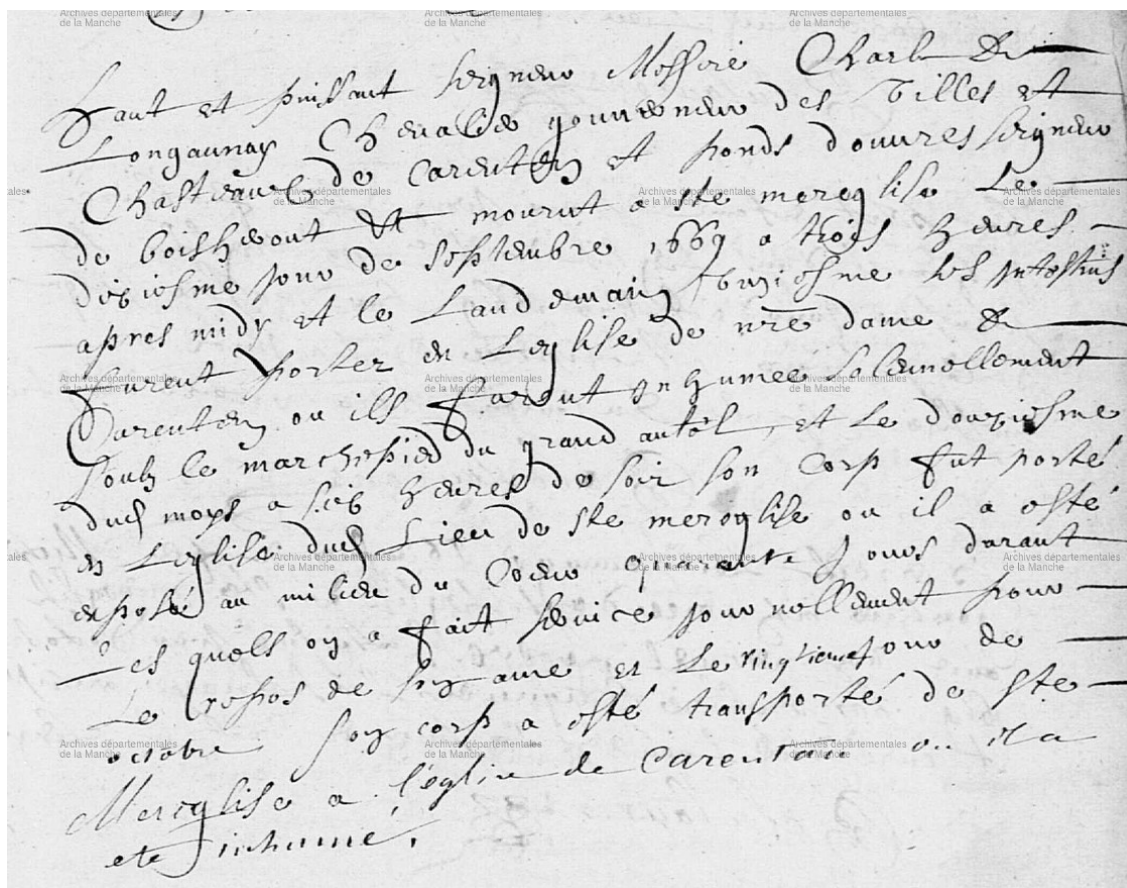 haut et puissant seigneur Messire Charle de
Longaunay Chevalier gouverneur des Villes et
Chasteaux de Carenten et ponds douures seigneur
de boishrout mourut a ste mereglise Le
dixiesme jour de septembre 1669 a trois heures
apres midy et le Landemain unziesme ses Intestins
furent porter en Leglise de nre dame de
Carenten ou ills furent Inhumée solennellement
soubz le marchepied du grand autel, et Le douziesme
dud moys a six heures de soir son Corp fut porté
en Leglise dud Lieu de ste mereglise ou il a esté
exposé au milieu du Coeur quarante jours durant
Les quels on a fait service journellement pour
Le repos de son ame et Le vingtieme jour de
octobre son corp a esté transporté de ste
Mereglise a l'église de Carentan ou il a
ete inhumé.
Archives départementales
de la Manche